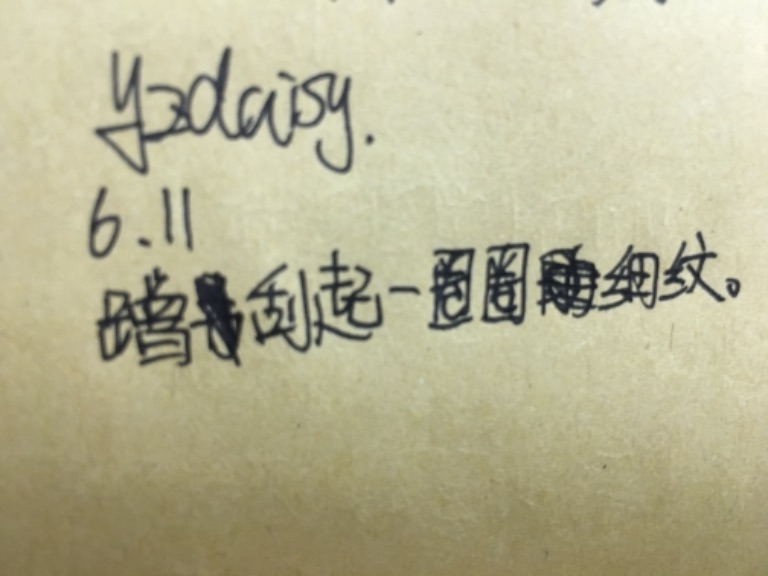 yzdaisy.
6.11
增刮起一圈圈细纹。